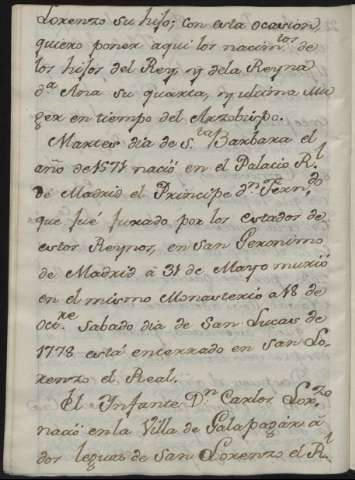 Lorenzo su hijo; con esta ocasion,
quiero poner aqui los nacim.tos de
los hijos del Rey, y dela Reyna
d.a Ana su quarta, y ultima Mu
ger en tiempo del Arzobispo.
Martes dia de S.ta Barbara el
año de 1571 nació en el Palacio R.l
de Madrid el Principe d.n Fern.do
que fué jurado por los estados de
estos Reynos, en San Geronimo
de Madrid á 31 de Mayo murió
en el mismo Monasterio á 18 de
Oct.re Sabado dia de San Lucas de
1778 está encerrado en San Lo-
renzo el Real.
El Infante D.n Carlos Lor.zo
nació en la Villa de Galapagar á
dos leguas de San Lorenzo el R.l